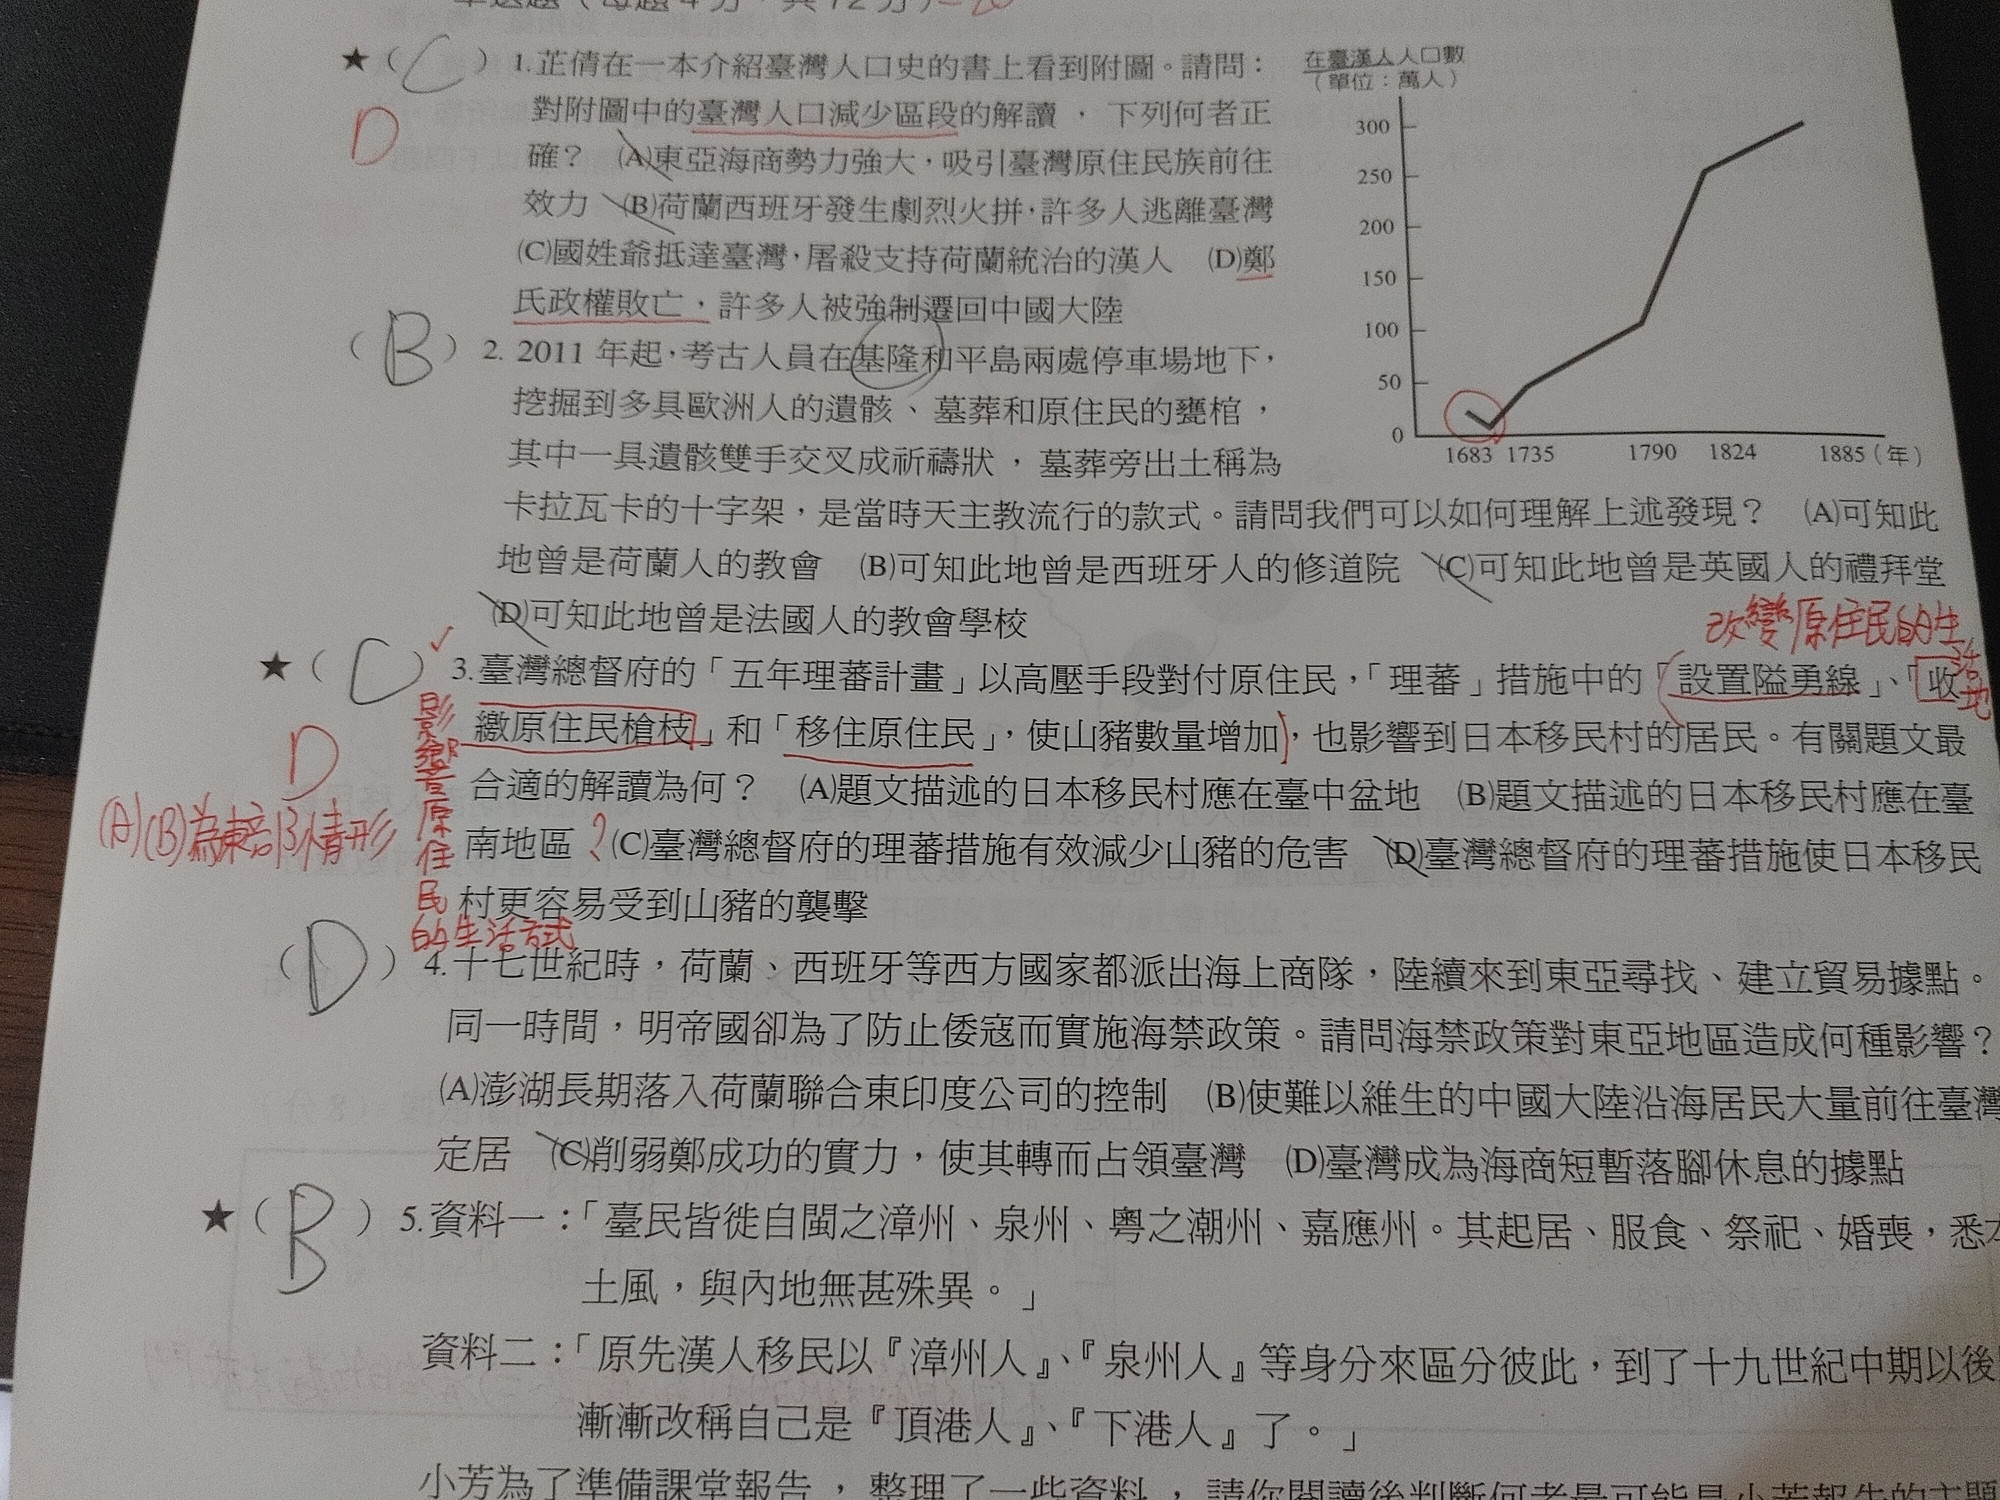 ★( C ) 1.芷倩在一本介紹臺灣人口史的書上看到附圖。請問：
D
對附圖中的臺灣人口減少區段的解讀，下列何者正
確？ (A)東亞海商勢力強大，吸引臺灣原住民族前往
效力 (B)荷蘭西班牙發生劇烈火拼，許多人逃離臺灣
(C)國姓爺抵達臺灣，屠殺支持荷蘭統治的漢人 (D)鄭
氏政權敗亡，許多人被強制遷回中國大陸
在臺漢人人口數
(單位：萬人)
300
250
200
150
100
50
0
1683 1735 1790 1824 1885 (年)
( B ) 2. 2011 年起，考古人員在基隆和平島兩處停車場地下，
挖掘到多具歐洲人的遺骸、墓葬和原住民的甕棺，
其中一具遺骸雙手交叉成祈禱狀，墓葬旁出土稱為
卡拉瓦卡的十字架，是當時天主教流行的款式。請問我們可以如何理解上述發現？ (A)可知此
地曾是荷蘭人的教會 (B)可知此地曾是西班牙人的修道院 (C)可知此地曾是英國人的禮拜堂
(D)可知此地曾是法國人的教會學校
改變原住民的生活地
★( C ) 3.臺灣總督府的「五年理蕃計畫」以高壓手段對付原住民，「理蕃」措施中的「設置隘勇線」、「收
繳原住民槍枝」和「移住原住民」，使山豬數量增加，也影響到日本移民村的居民。有關題文最
D
合適的解讀為何？ (A)題文描述的日本移民村應在臺中盆地 (B)題文描述的日本移民村應在臺
(A)(B)為東部情形
南地區 ? (C)臺灣總督府的理蕃措施有效減少山豬的危害 (D)臺灣總督府的理蕃措施使日本移民
村更容易受到山豬的襲擊
影響原住民
的生活方式
( D ) 4.十七世紀時，荷蘭、西班牙等西方國家都派出海上商隊，陸續來到東亞尋找、建立貿易據點。
同一時間，明帝國卻為了防止倭寇而實施海禁政策。請問海禁政策對東亞地區造成何種影響？
(A)澎湖長期落入荷蘭聯合東印度公司的控制 (B)使難以維生的中國大陸沿海居民大量前往臺灣
定居 (C)削弱鄭成功的實力，使其轉而占領臺灣 (D)臺灣成為海商短暫落腳休息的據點
★( B ) 5.資料一：「臺民皆徙自閩之漳州、泉州、粵之潮州、嘉應州。其起居、服食、祭祀、婚喪，悉本
土風，與內地無甚殊異。」
資料二：「原先漢人移民以『漳州人』、『泉州人』等身分來區分彼此，到了十九世紀中期以後
漸漸改稱自己是『頂港人』、『下港人』了。」
小芳為了準備課堂報告，整理了一些資料，請你閱讀後判斷何者最可能是小芳報告的主題